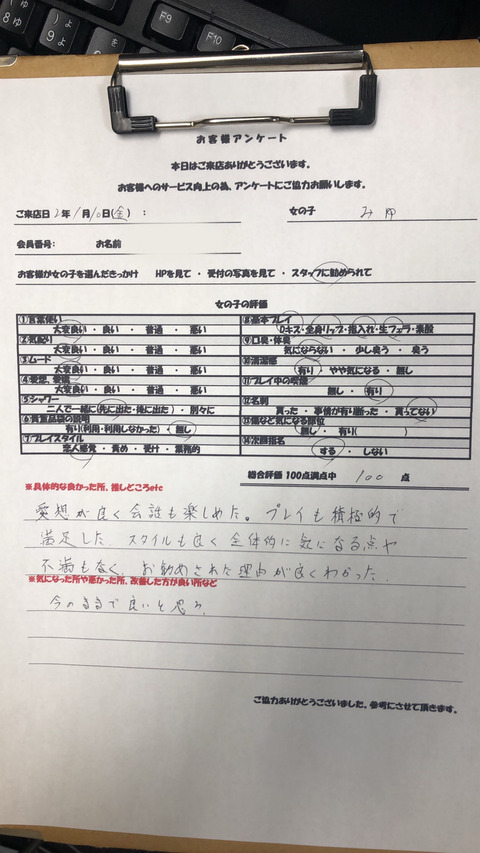 お客様アンケート
本日はご来店ありがとうございます。
お客様へのサービス向上の為、アンケートにご協力お願いします。
ご来店日 2年 1月 10日(金) :
女の子 みゆ
会員番号: お名前
お客様が女の子を選んだきっかけ HPを見て ・ 受付の写真を見て ・ スタッフに勧められて
女の子の評価
①言葉使い
大変良い ・ 良い ・ 普通 ・ 悪い
②気配り
大変良い ・ 良い ・ 普通 ・ 悪い
③ムード
大変良い ・ 良い ・ 普通 ・ 悪い
④愛想、愛嬌
大変良い ・ 良い ・ 普通 ・ 悪い
⑤シャワー
二人で一緒(先に出た・後に出た) ・ 別々に
⑥貴重品袋の説明
有り(利用・利用しなかった) ・ 無し
⑦プレイスタイル
恋人感覚 ・ 責め ・ 受け ・ 業務的
⑧基本プレイ
Dキス・全身リップ・指入れ・生フェラ・素股
⑨口臭・体臭
気にならない ・ 少し臭う ・ 臭う
⑩清潔感
有り ・ やや気になる ・ 無し
⑪プレイ中の喫煙
無し ・ 有り
⑫名刺
貰った ・ 事情が有り断った ・ 貰ってない
⑬傷など気になる部位
無し ・ 有り( )
⑭次回指名
する ・ しない
総合評価 100点満点中 100 点
※具体的な良かった所、推しどころetc
愛想が良く会話も楽しめた。プレイも積極的で
満足した。スタイルも良く全体的に気になる点や
不満もなく、お勧めされた理由が良くわかった。
※気になった所や悪かった所、改善した方が良い所など
今のままで良いと思う。
ご協力ありがとうございました。参考にさせて頂きます。
F9
F10